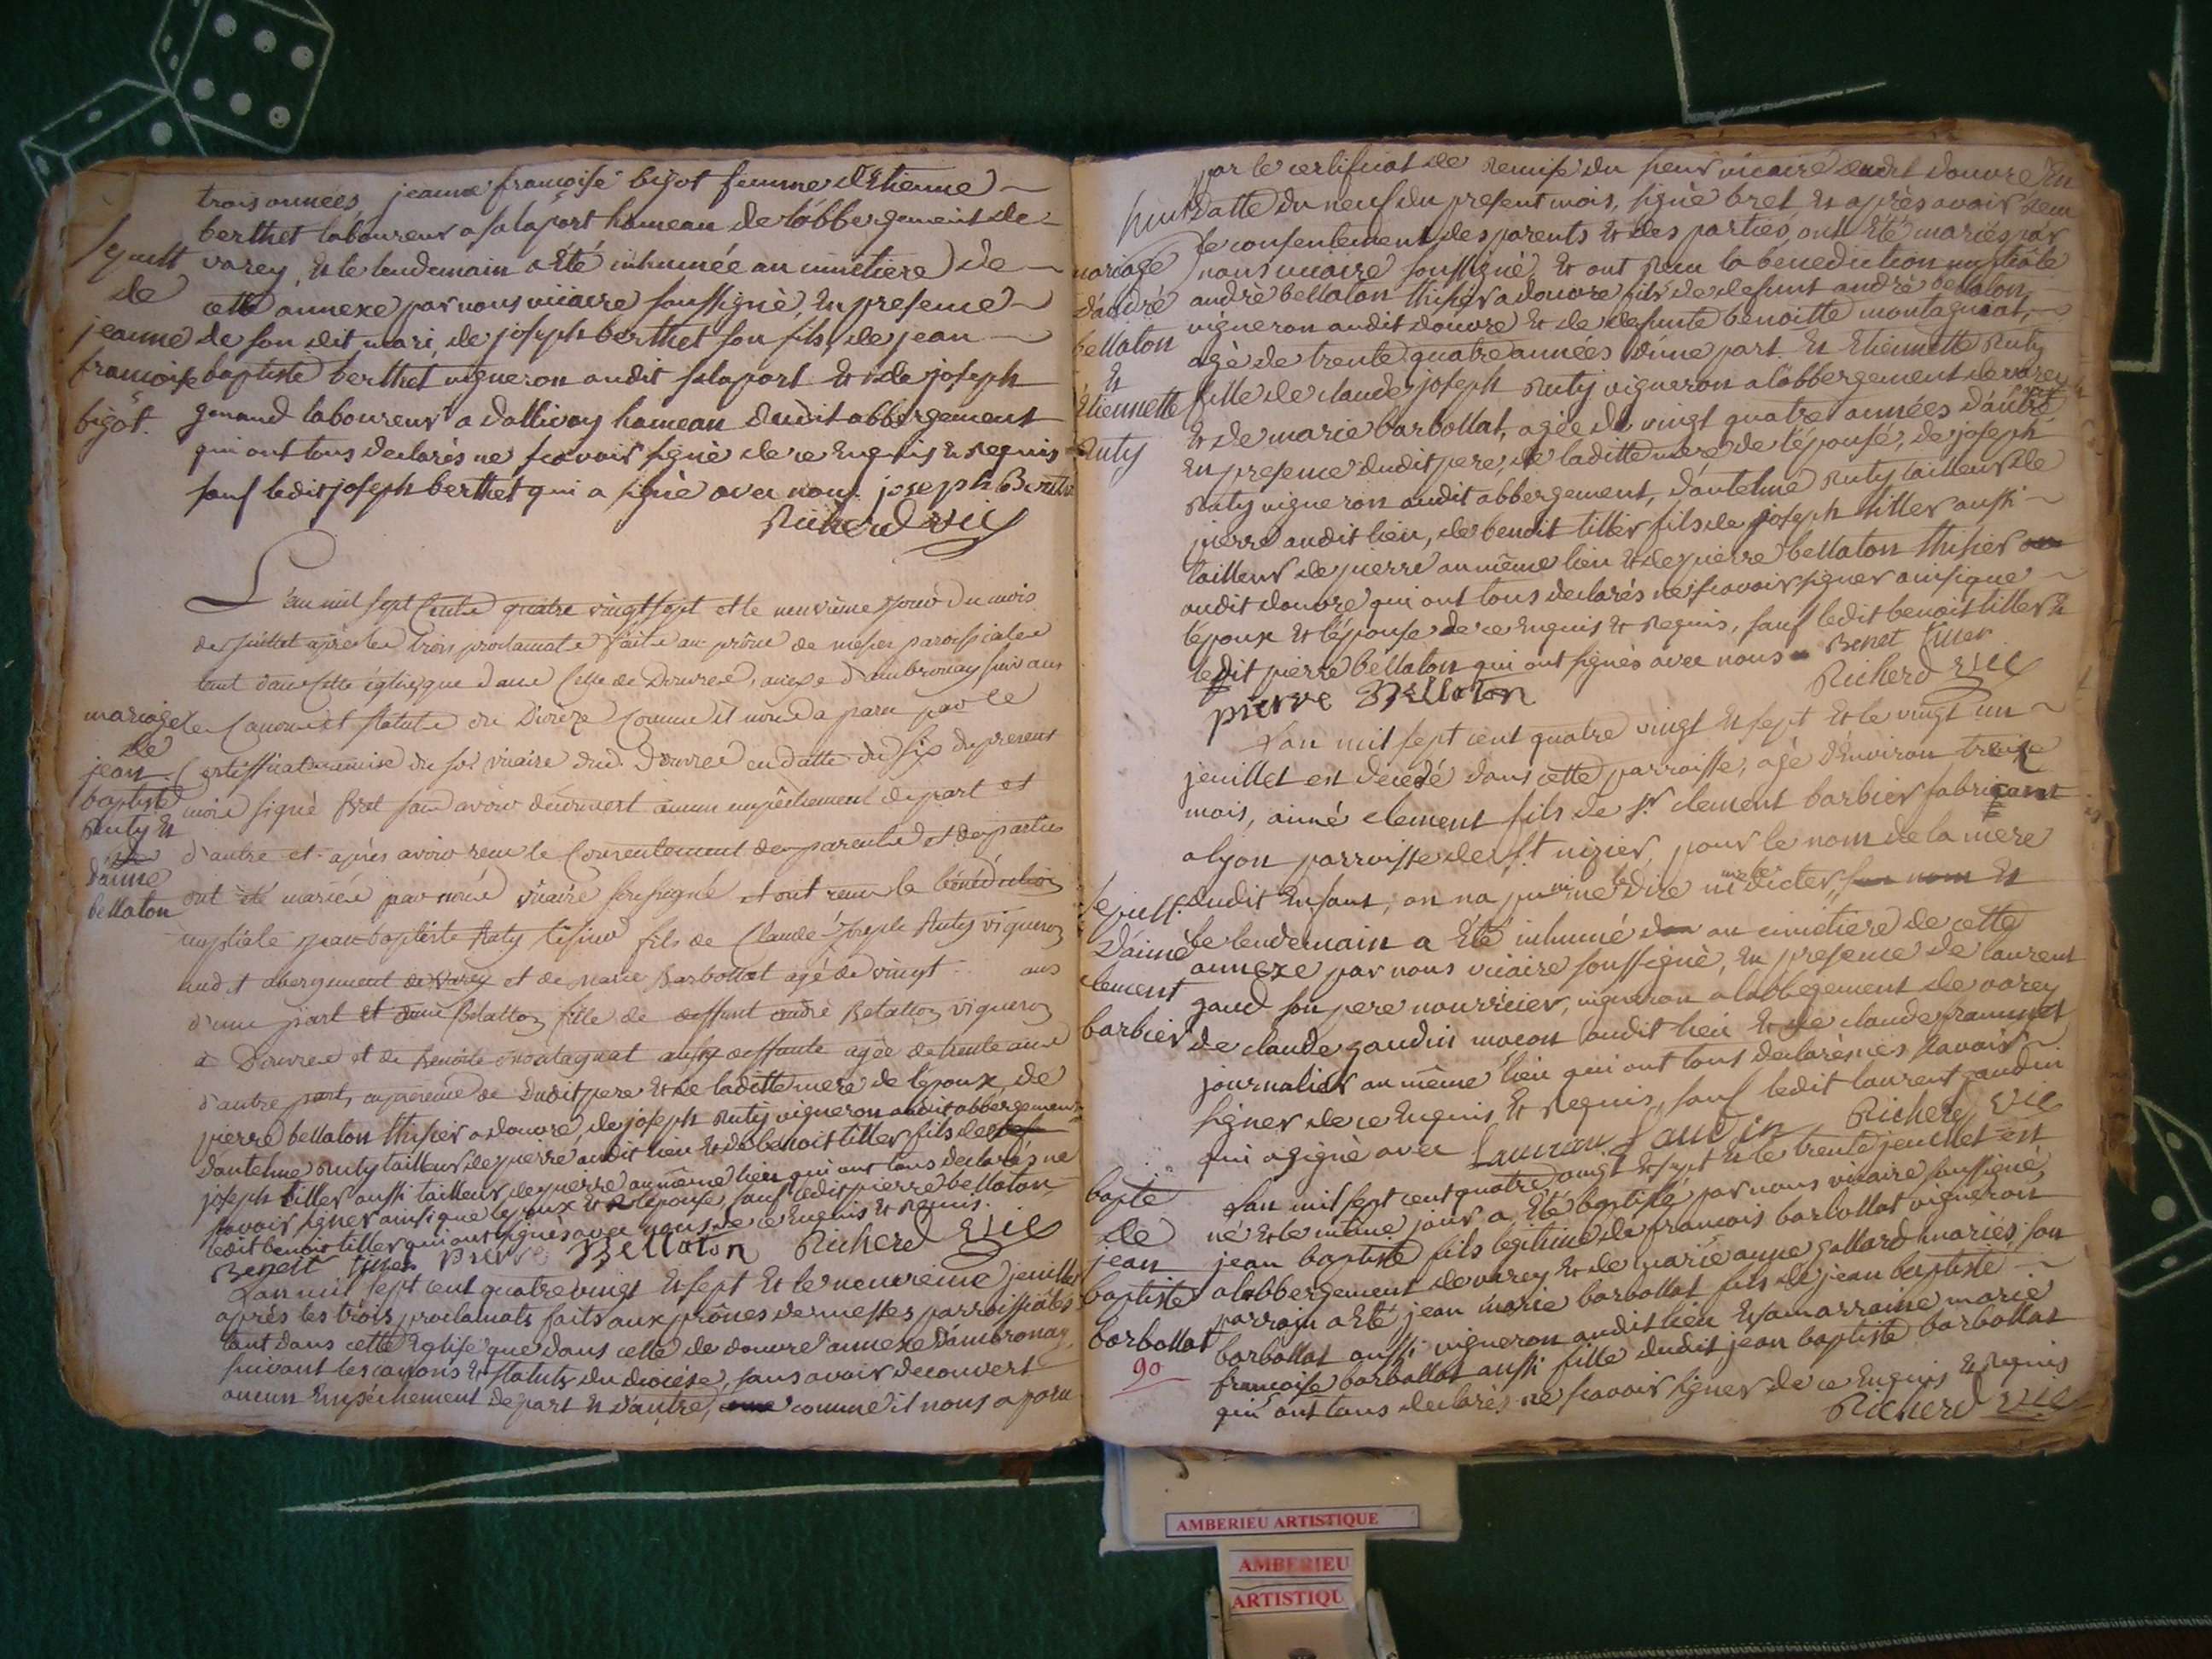 trois années jeanne françoise bigot femme d'Etienne
berthet laboureur a salaport hameau de l'abbergement de
varey, Et le lendemain a Eté inhumée au cimetiere de
cette annexe par nous vicaire soussigné, En presence
de son dit mari, de joseph berthet son fils, de jean
baptiste berthet vigneron audit salaport Et de joseph
genand laboureur a dallivoy hameau dudit abbergement
qui ont tous declarés ne scavoir signé de ce Enquis Et requis
sauf ledit joseph berthet qui a signé avec nous. joseph Berthet
Richerd vic
sepult
de
jeanne
francoise
bigot.
L'an mil sept Cents quatre vingt sept et le neuvieme jour du mois
de Juillet après les trois proclamats faits au prône de messes paroissiales
tant dans Cette église que dans Celle de Douvres, anexe d'ambronay suivant
les Canons et statuts du Diocèze Comme il nous a paru par le
Certifficat de remise du sr vicaire dud. Douvres en datte du six du present
mois signé Bret sans avoir découvert aucun empêchement de part et
d'autre et après avoir recu le Consentement des parents et des parties
ont été mariés par nous vicaire soussigné et ont recu la bénédiction
nuptiale jean baptiste Ruty tisier fils de Claude Joseph Ruty vigneron
audit abergement de varey et de Marie Barbollat agé de vingt ans
d'une part et anne Bélatton fille de deffunt andré Belatton vigneron
à Douvres et de Benoite montagnat aussy deffunte agée de trente ans
d'autre part, en presence de Dudit pere Et de laditte mere de l'epoux, de
pierre bellaton thisier a douvre, de joseph Ruty vigneron audit abbergement
d'antelme Ruty tailleur de pierre audit lieu Et de benoit tiller fils de
joseph tiller aussi tailleur de pierre au même lieu qui ont tous declarés ne
scavoir signer ainsi que l'epoux Et l'epouse, sauf ledit pierre bellaton
ledit benoit tiller qui ont signés avec nous de ce Enquis Et requis.
Benoit tiller pierre Bellaton Richerd vic
mariage
de
jean
baptiste
Ruty Et
d'anne
bellaton
L'an mil sept cent quatre vingt Et sept Et le neuvieme jeuillet
après les trois proclamats faits aux prônes de messes parroissiales
tant dans cette Eglise que dans celle de douvre annexe d'ambronay
suivant les canons Et statuts du diocése, sans avoir decouvert
aucun Empéchement de part Et d'autre, comme il nous a paru
par le certificat de remise du sieur vicaire dudit douvre En
datte du neuf du present mois, signé bret Et après avoir recu
le consentement des parents Et des parties, ont Eté mariés par
nous vicaire soussigné, Et ont recu la benediction nuptiale
andré bellaton thisier a douvre fils de defunt andré bellaton
vigneron audit douvre Et de defunte benoitte montagnat,
agé de trente quatre années d'une part. Et Etiennette Ruty
fille de claude joseph Ruty vigneron a l'abbergement de varey
Et de marie barbollat, agée de vingt quatre années d'autre part
En presence dudit pere, de laditte mere de l'épouse, de joseph
Ruty vigneron audit abbergement, d'antelme Ruty tailleur de
pierre audit lieu, de benoit tiller fils de joseph tiller aussi
tailleur de pierre au même lieu Et de pierre bellaton thisier
audit douvre qui ont tous declarés ne scavoir signer ainsi que
l'époux Et l'épouse de ce Enquis Et requis, sauf ledit benoit tiller Et
ledit pierre bellaton qui ont signés avec nous Benet tiller
pierre Bellaton Richerd vic
mariage
d'andré
bellaton
Et
Etiennette
Ruty
L'an mil sept cent quatre vingt Et sept Et le vingt un
jeuillet est decedé dans cette parroisse, agé d'Environ treize
mois, aimé clement fils de sr. clement barbier fabricant
a lyon parroisse de st. nizier, pour le nom de la mere
dudit Enfant, on na pu ni me le dire ni me le dicter, Et
le lendemain a Eté inhumé au cimetiere de cette
annexe par nous vicaire soussigné, En presence de laurent
gaud son pere nourricier, vigneron a l'abbegement de varey
de claude gaudin macon audit lieu Et de claude
journalier au même lieu qui ont tous declarés ne scavoir
signer de ce Enquis Et requis, sauf ledit laurent gaudin
qui a signé avec Lauran Gaudin Richerd vic
sepult.
d'aimé
clement
barbier
L'an mil sept cent quatre vingt Et sept Et le trente jeuillet est
né Et le même jour a Eté baptisé par nous vicaire soussigné,
jean baptiste fils legitime de francois barbollat vigneron
a l'abbergement de varey Et de marie anne gallard mariés, son
parrain a Eté jean marie barbollat fils de jean baptiste
barbollat aussi vigneron audit lieu Et sa marraine marie
francoise barbollat aussi fille dudit jean baptiste barbollat
qui ont tous declarés ne scavoir signer de ce Enquis Et requis
Richerd vic
bapte
de
jean
baptiste
barbollat
90
AMBERIEU ARTISTIQUE
AMBERIEU
ARTISTIQU